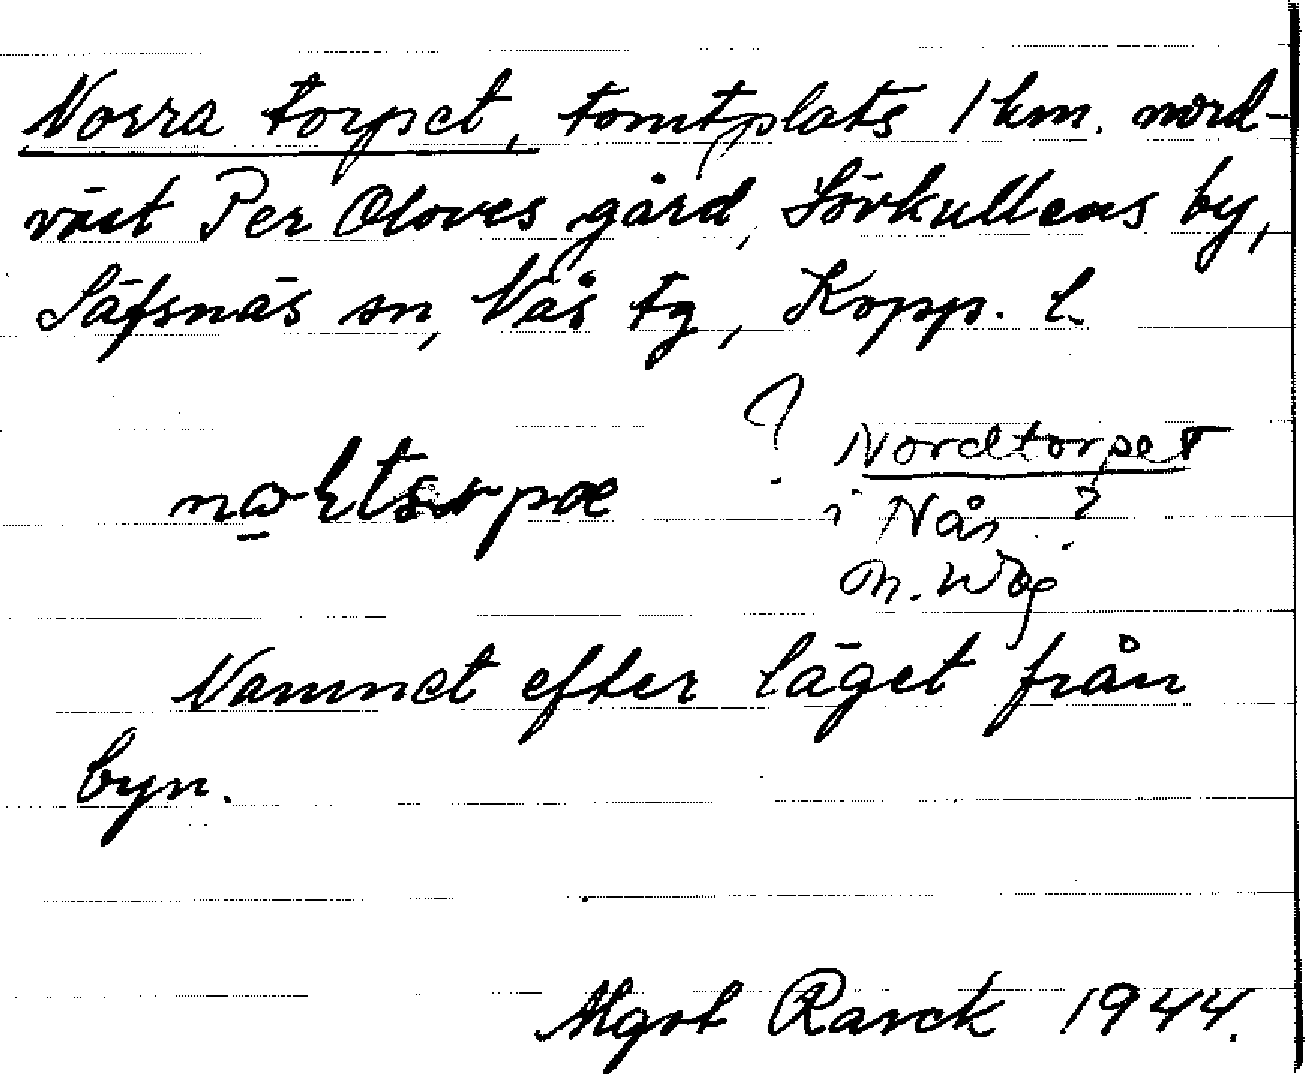 Norra torpet, tomtplats 1 km. nord-
väst Per Oloves gård, Sörkullens by,
Säfsnäs sn, Nås tg, Kopp. l.
?
Nordtorpet
i Nås ?
Namnet efter läget från
byn.
Algot Rarck 1944.